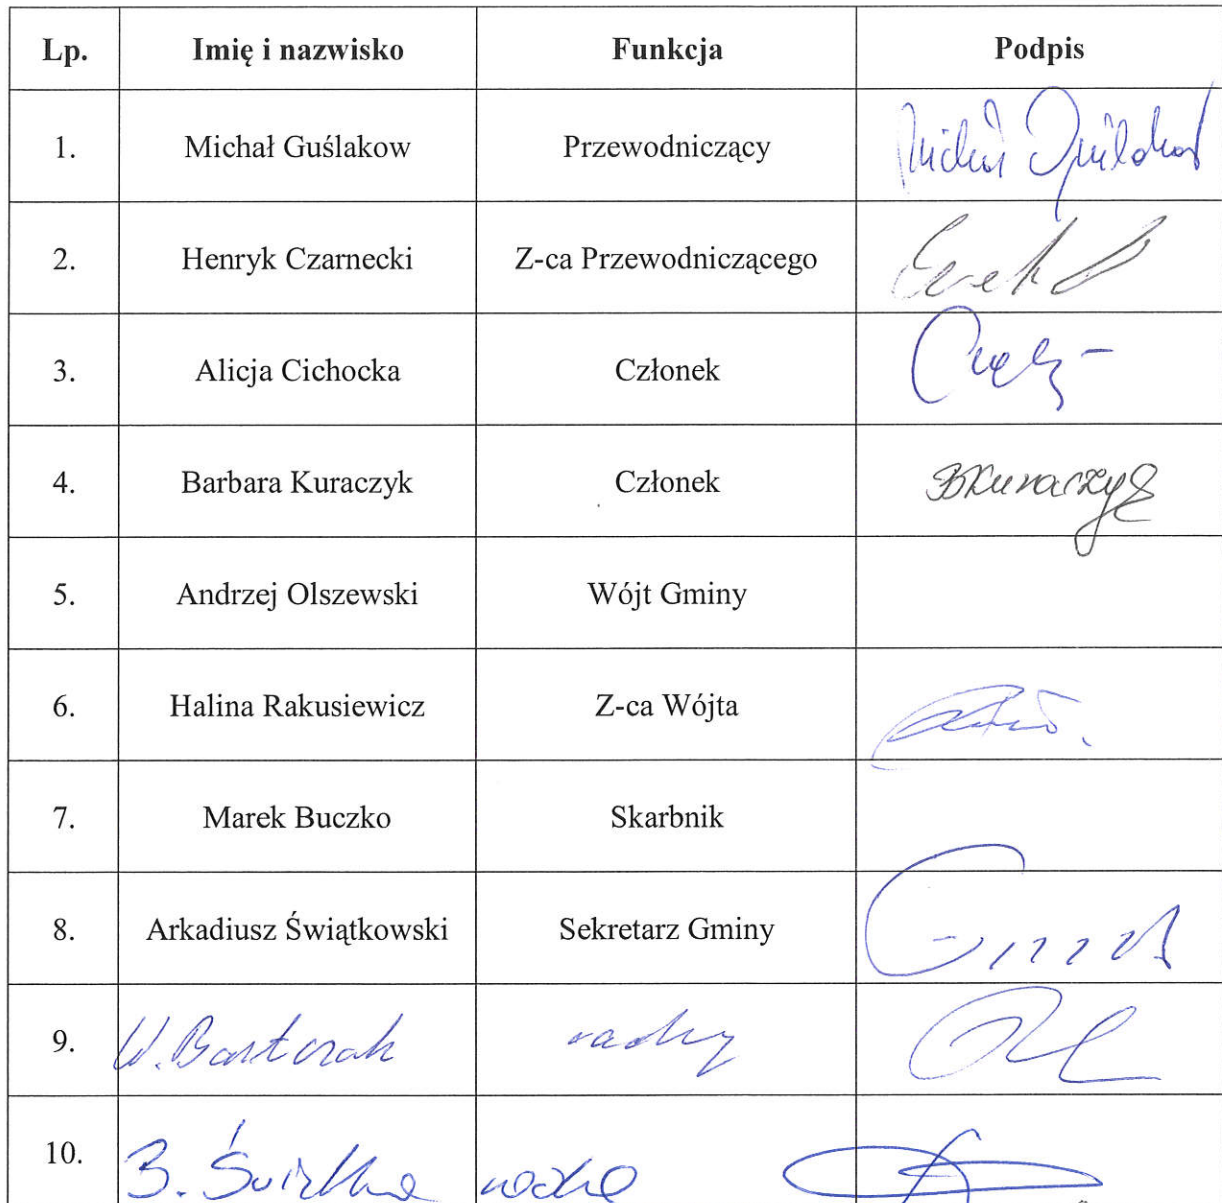 Lp. Imię i nazwisko Funkcja Podpis
1. Michał Guślakow Przewodniczący
2. Henryk Czarnecki Z-ca Przewodniczącego
3. Alicja Cichocka Członek
4. Barbara Kuraczyk Członek BKuraczyk
5. Andrzej Olszewski Wójt Gminy
6. Halina Rakusiewicz Z-ca Wójta
7. Marek Buczko Skarbnik
8. Arkadiusz Świątkowski Sekretarz Gminy
9. W. Bartczak radny
10. B.